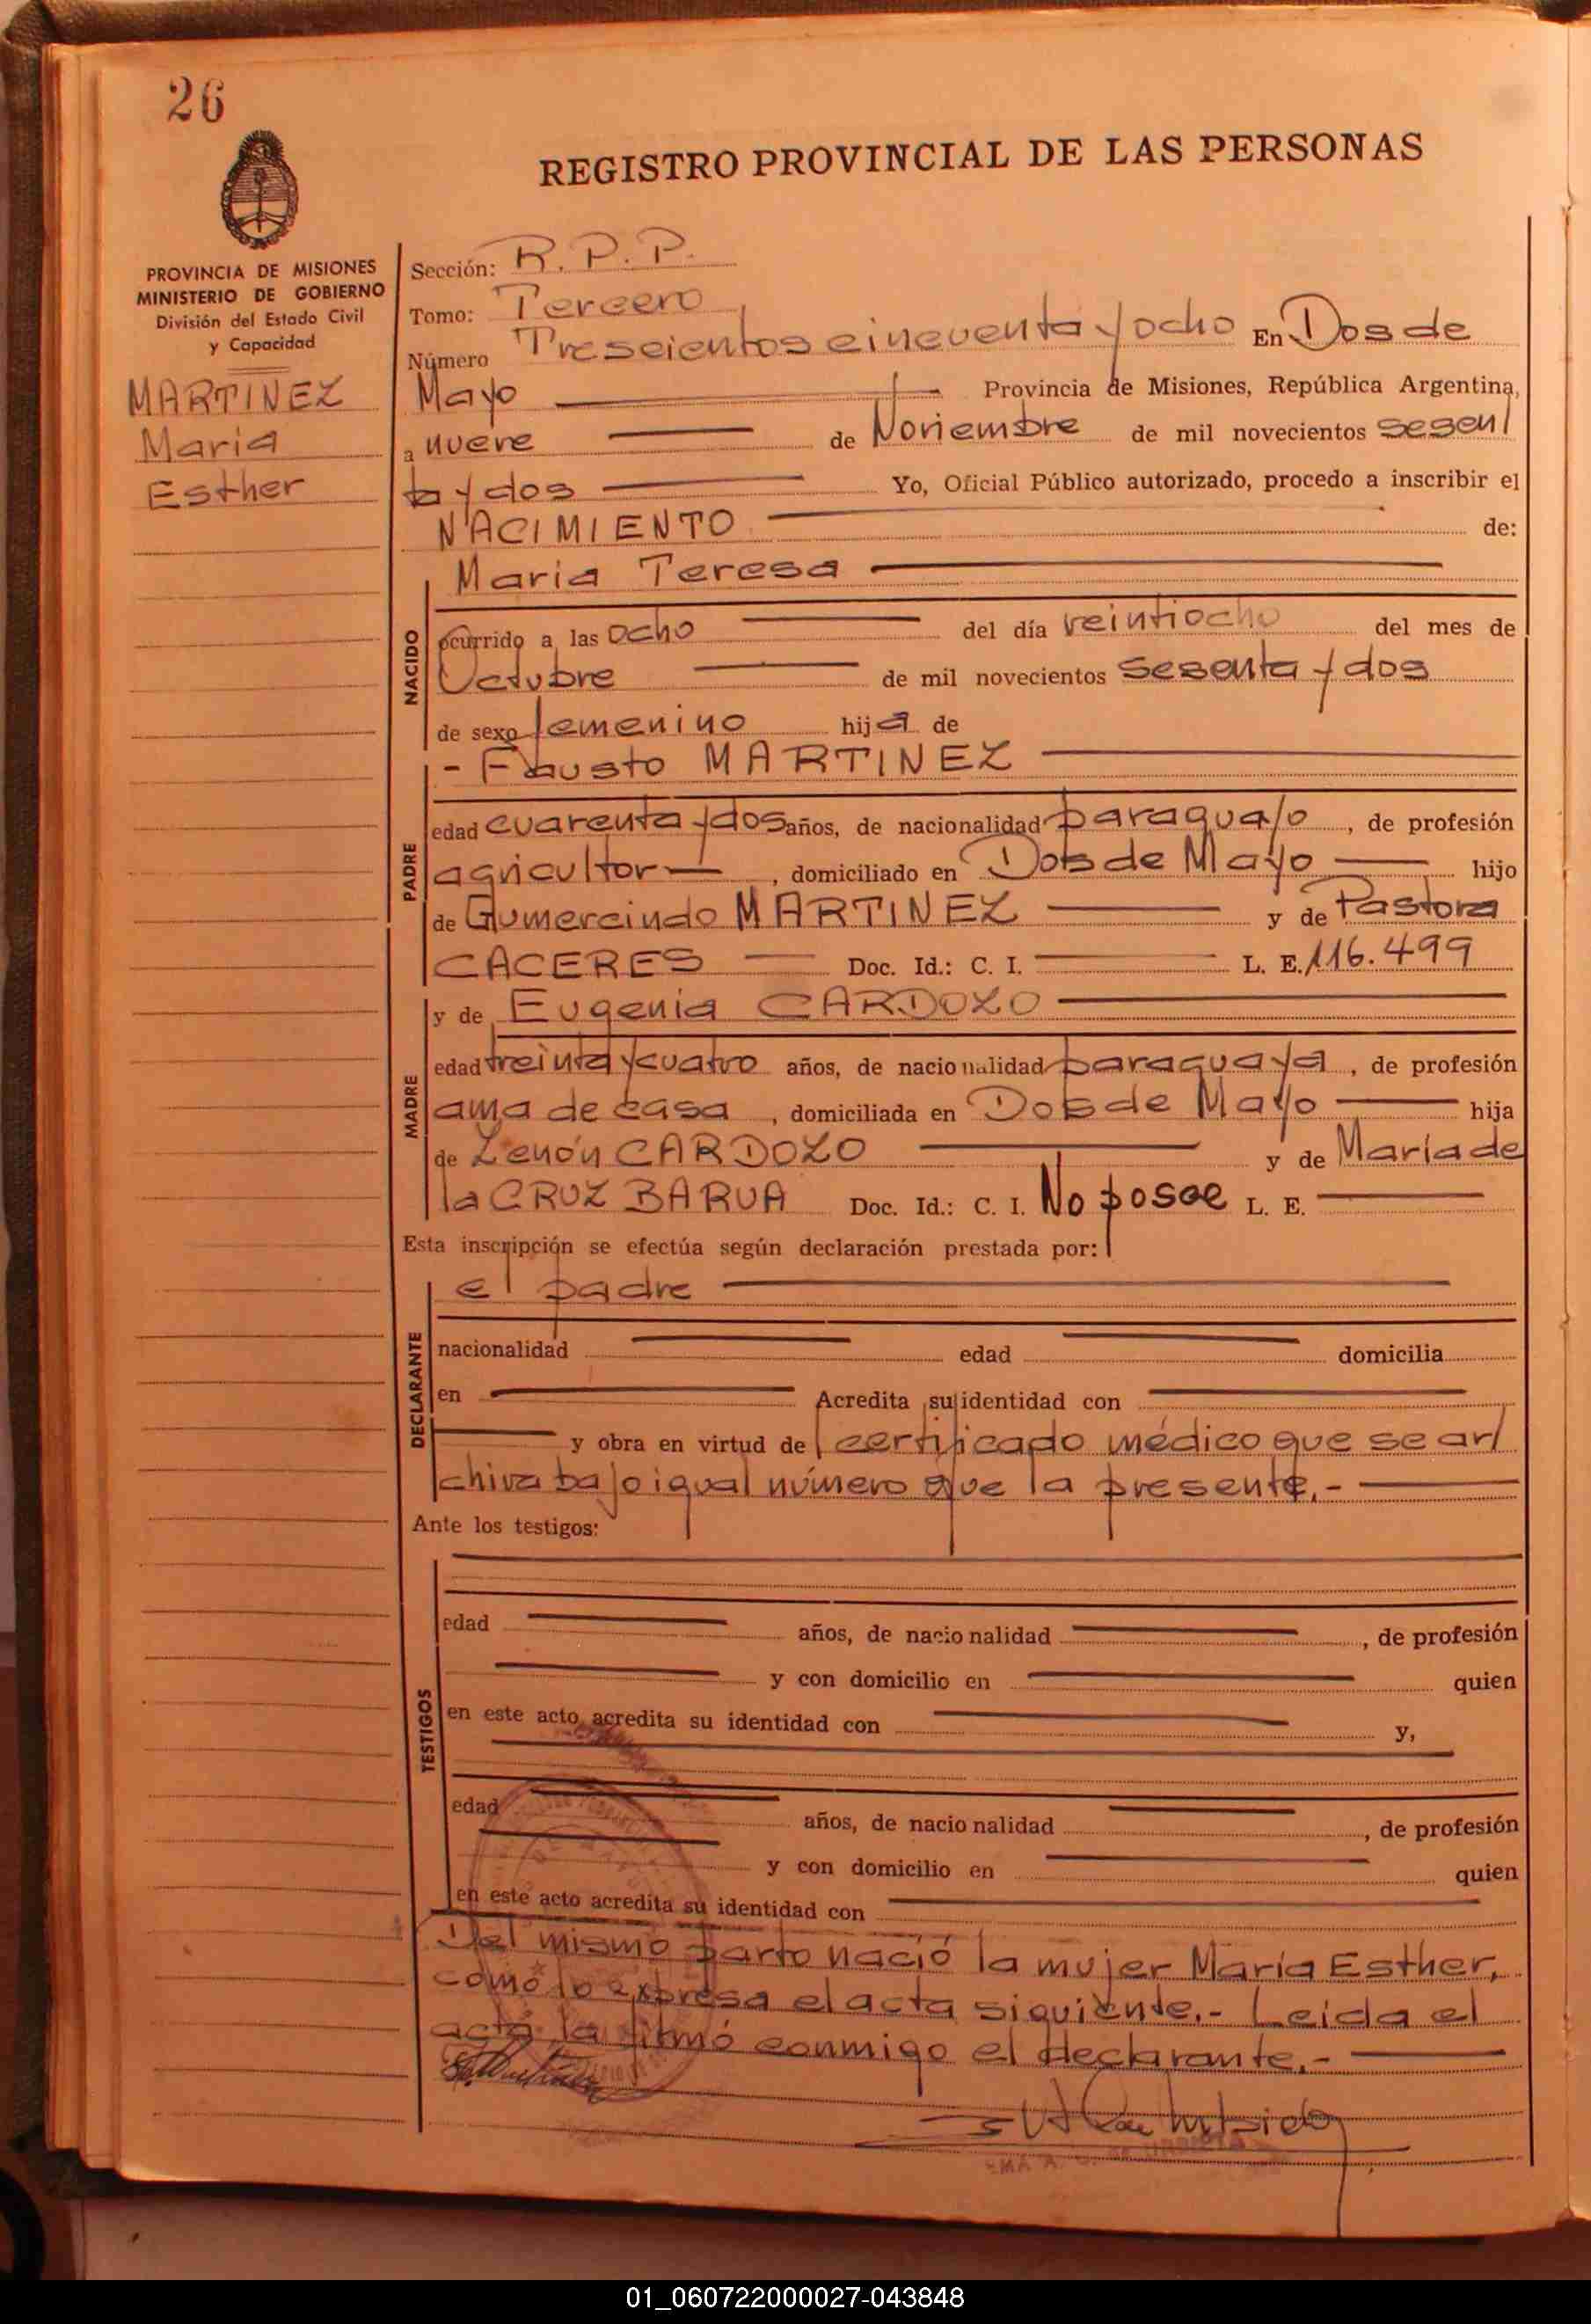 26
REGISTRO PROVINCIAL DE LAS PERSONAS
PROVINCIA DE MISIONES
MINISTERIO DE GOBIERNO
División del Estado Civil
y Capacidad
MARTINEZ
Maria
Esther
Sección: R. P. P.
Tomo: Tercero
Número Trescientos cincuenta y ocho En Dos de
Mayo Provincia de Misiones, República Argentina,
a nueve de Noviembre de mil novecientos sesen
ta y dos Yo, Oficial Público autorizado, procedo a inscribir el
NACIMIENTO de:
Maria Teresa
NACIDO
ocurrido a las ocho del día veintiocho del mes de
Octubre de mil novecientos sesenta y dos
de sexo femenino hija de
- Fausto MARTINEZ
PADRE
edad cuarenta y dos años, de nacionalidad paraguayo, de profesión
agricultor, domiciliado en Dos de Mayo hijo
de Gumercindo MARTINEZ y de Pastora
CACERES Doc. Id.: C. I. L. E. 116.499
y de Eugenia CARDOZO
MADRE
edad treinta y cuatro años, de nacionalidad paraguaya, de profesión
ama de casa, domiciliada en Dos de Mayo hija
de Zenón CARDOZO y de María de
la CRUZ BARUA Doc. Id.: C. I. No posee L. E.
Esta inscripción se efectúa según declaración prestada por:
el padre
DECLARANTE
nacionalidad edad domicilia
en Acredita su identidad con
y obra en virtud de certificado médico que se ar
chiva bajo igual número que la presente.-
Ante los testigos:
TESTIGOS
edad años, de nacionalidad, de profesión
y con domicilio en quien
en este acto acredita su identidad con y,
edad años, de nacionalidad, de profesión
y con domicilio en quien
en este acto acredita su identidad con
Del mismo parto nació la mujer María Esther,
como lo expresa el acta siguiente.- Leida el
acta, la firmó conmigo el declarante.-
01_060722000027-043848